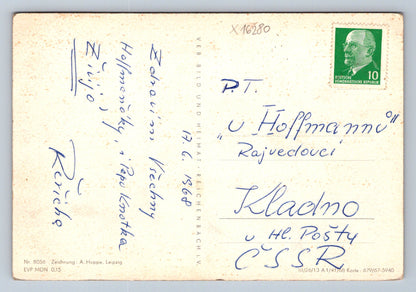 X16280
Zdravím Všechny
17.6.1968
Hoffmončky, i Pepo Knotka
Žijo
Řeřicha
VEB BILD UND HEIMAT REICHENBACH I. V.
DEUTSCHE
DEMOKRATISCHE REPUBLIK
10
P.T.
"U Hoffmannů"
Rajvedoucí
Kladno
u Hl. Pošty
ČSSR
Nr. 8056 Zeichnung: A. Hoppe, Leipzig
EVP MDN 0,15
III/26/13 A 1/41/68 Karte: 679/67-3940